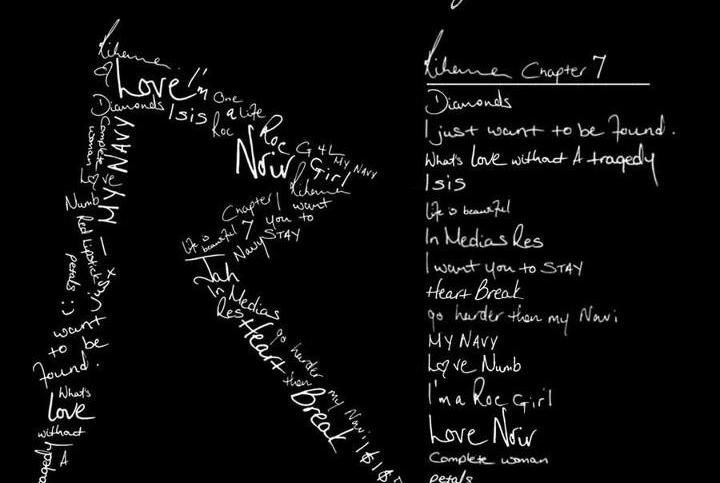 Rihanna
Love
I'm
One
Diamonds
Isis
a
Life
Roc
Roc
Noir
G4L
My Navy
Girl
Complete
woman
Love
MY NAVY
Rihanna
Numb
Chapter
7
I want
you to
STAY
Navy
Life is
beautiful
Red Lipstick
petals :)
Jah
In Medias
Res
I want
to be
found.
Heart
Break
go harder
then
my Navi
What's
Love
without
A
tragedy
Rihanna Chapter 7
Diamonds
I just want to be found.
What's Love without A tragedy
Isis
Life is beautiful
In Medias Res
I want you to STAY
Heart Break
go harder then my Navi
MY NAVY
Love Numb
I'm a Roc Girl
Love Noir
Complete woman
petals